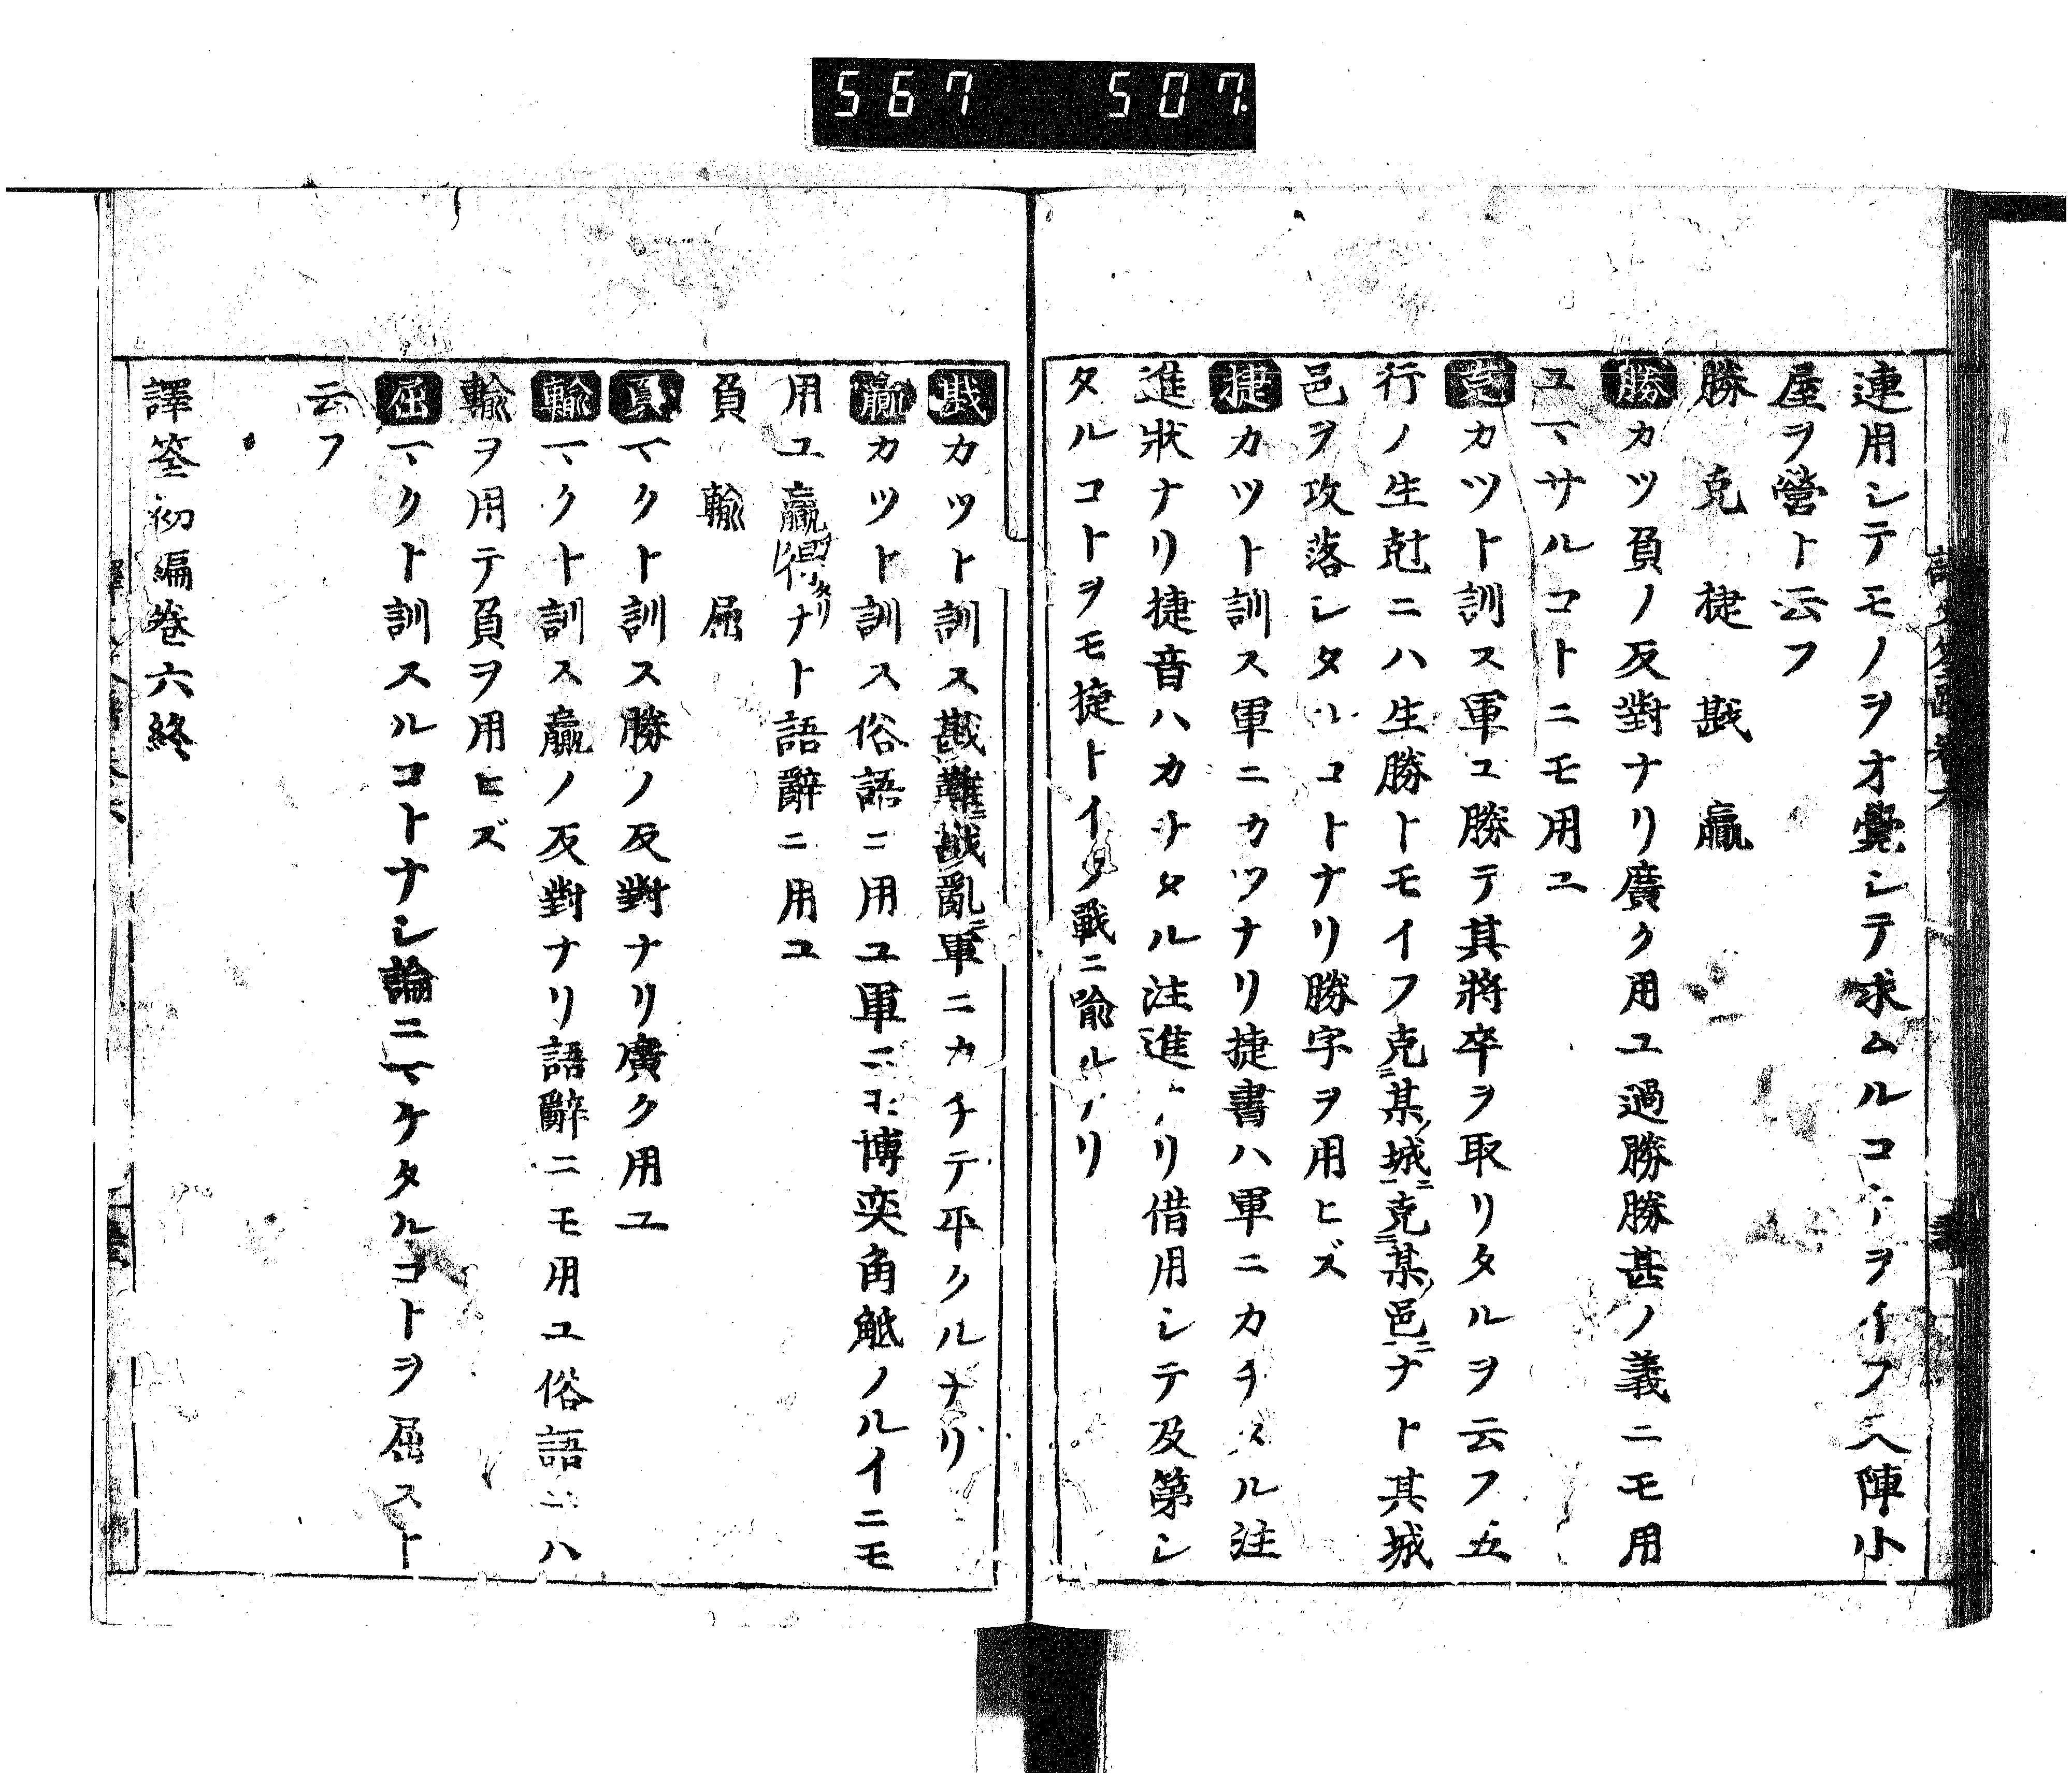 567 507
連用シテモノヲオ覺シテ求ムルコトヲイフ又陣小
屋ヲ營ト云フ
勝 克 捷 戡 贏
勝カツ負ノ反對ナリ廣ク用ユ過勝勝甚ノ義ニモ用
ユマサルコトニモ用ユ
克カツト訓ス軍ユ勝テ其將卒ヲ取リタルヲ云フ五
行ノ生尅ニハ生勝トモイフ克ニ某ノ城一ニ克ニ某ノ邑一ニナト其城
邑ヲ攻落シタルコトナリ勝字ヲ用ヒズ
捷カツト訓ス軍ニカツナリ捷書ハ軍ニカチタル注
進狀ナリ捷音ハカナタル注進ナリ借用シテ及第シ
タルコトヲモ捷トイフ戰ニ喩ルナリ
戡カツト訓ス戡難戡亂軍ニカチテ平クルナリ
贏カツト訓ス俗語ニ用ユ軍ニモ博奕角觝ノルイニモ
用ユ贏得タリナト語辭ニ用ユ
負 輸 屈
負マクト訓ス勝ノ反對ナリ廣ク用ユ
輸マクト訓ス贏ノ反對ナリ語辭ニモ用ユ俗語ニハ
輸ヲ用テ負ヲ用ヒズ
屈マクト訓スルコトナシ論ニマケタルコトヲ屈スト
云フ
譯筌初編卷六終